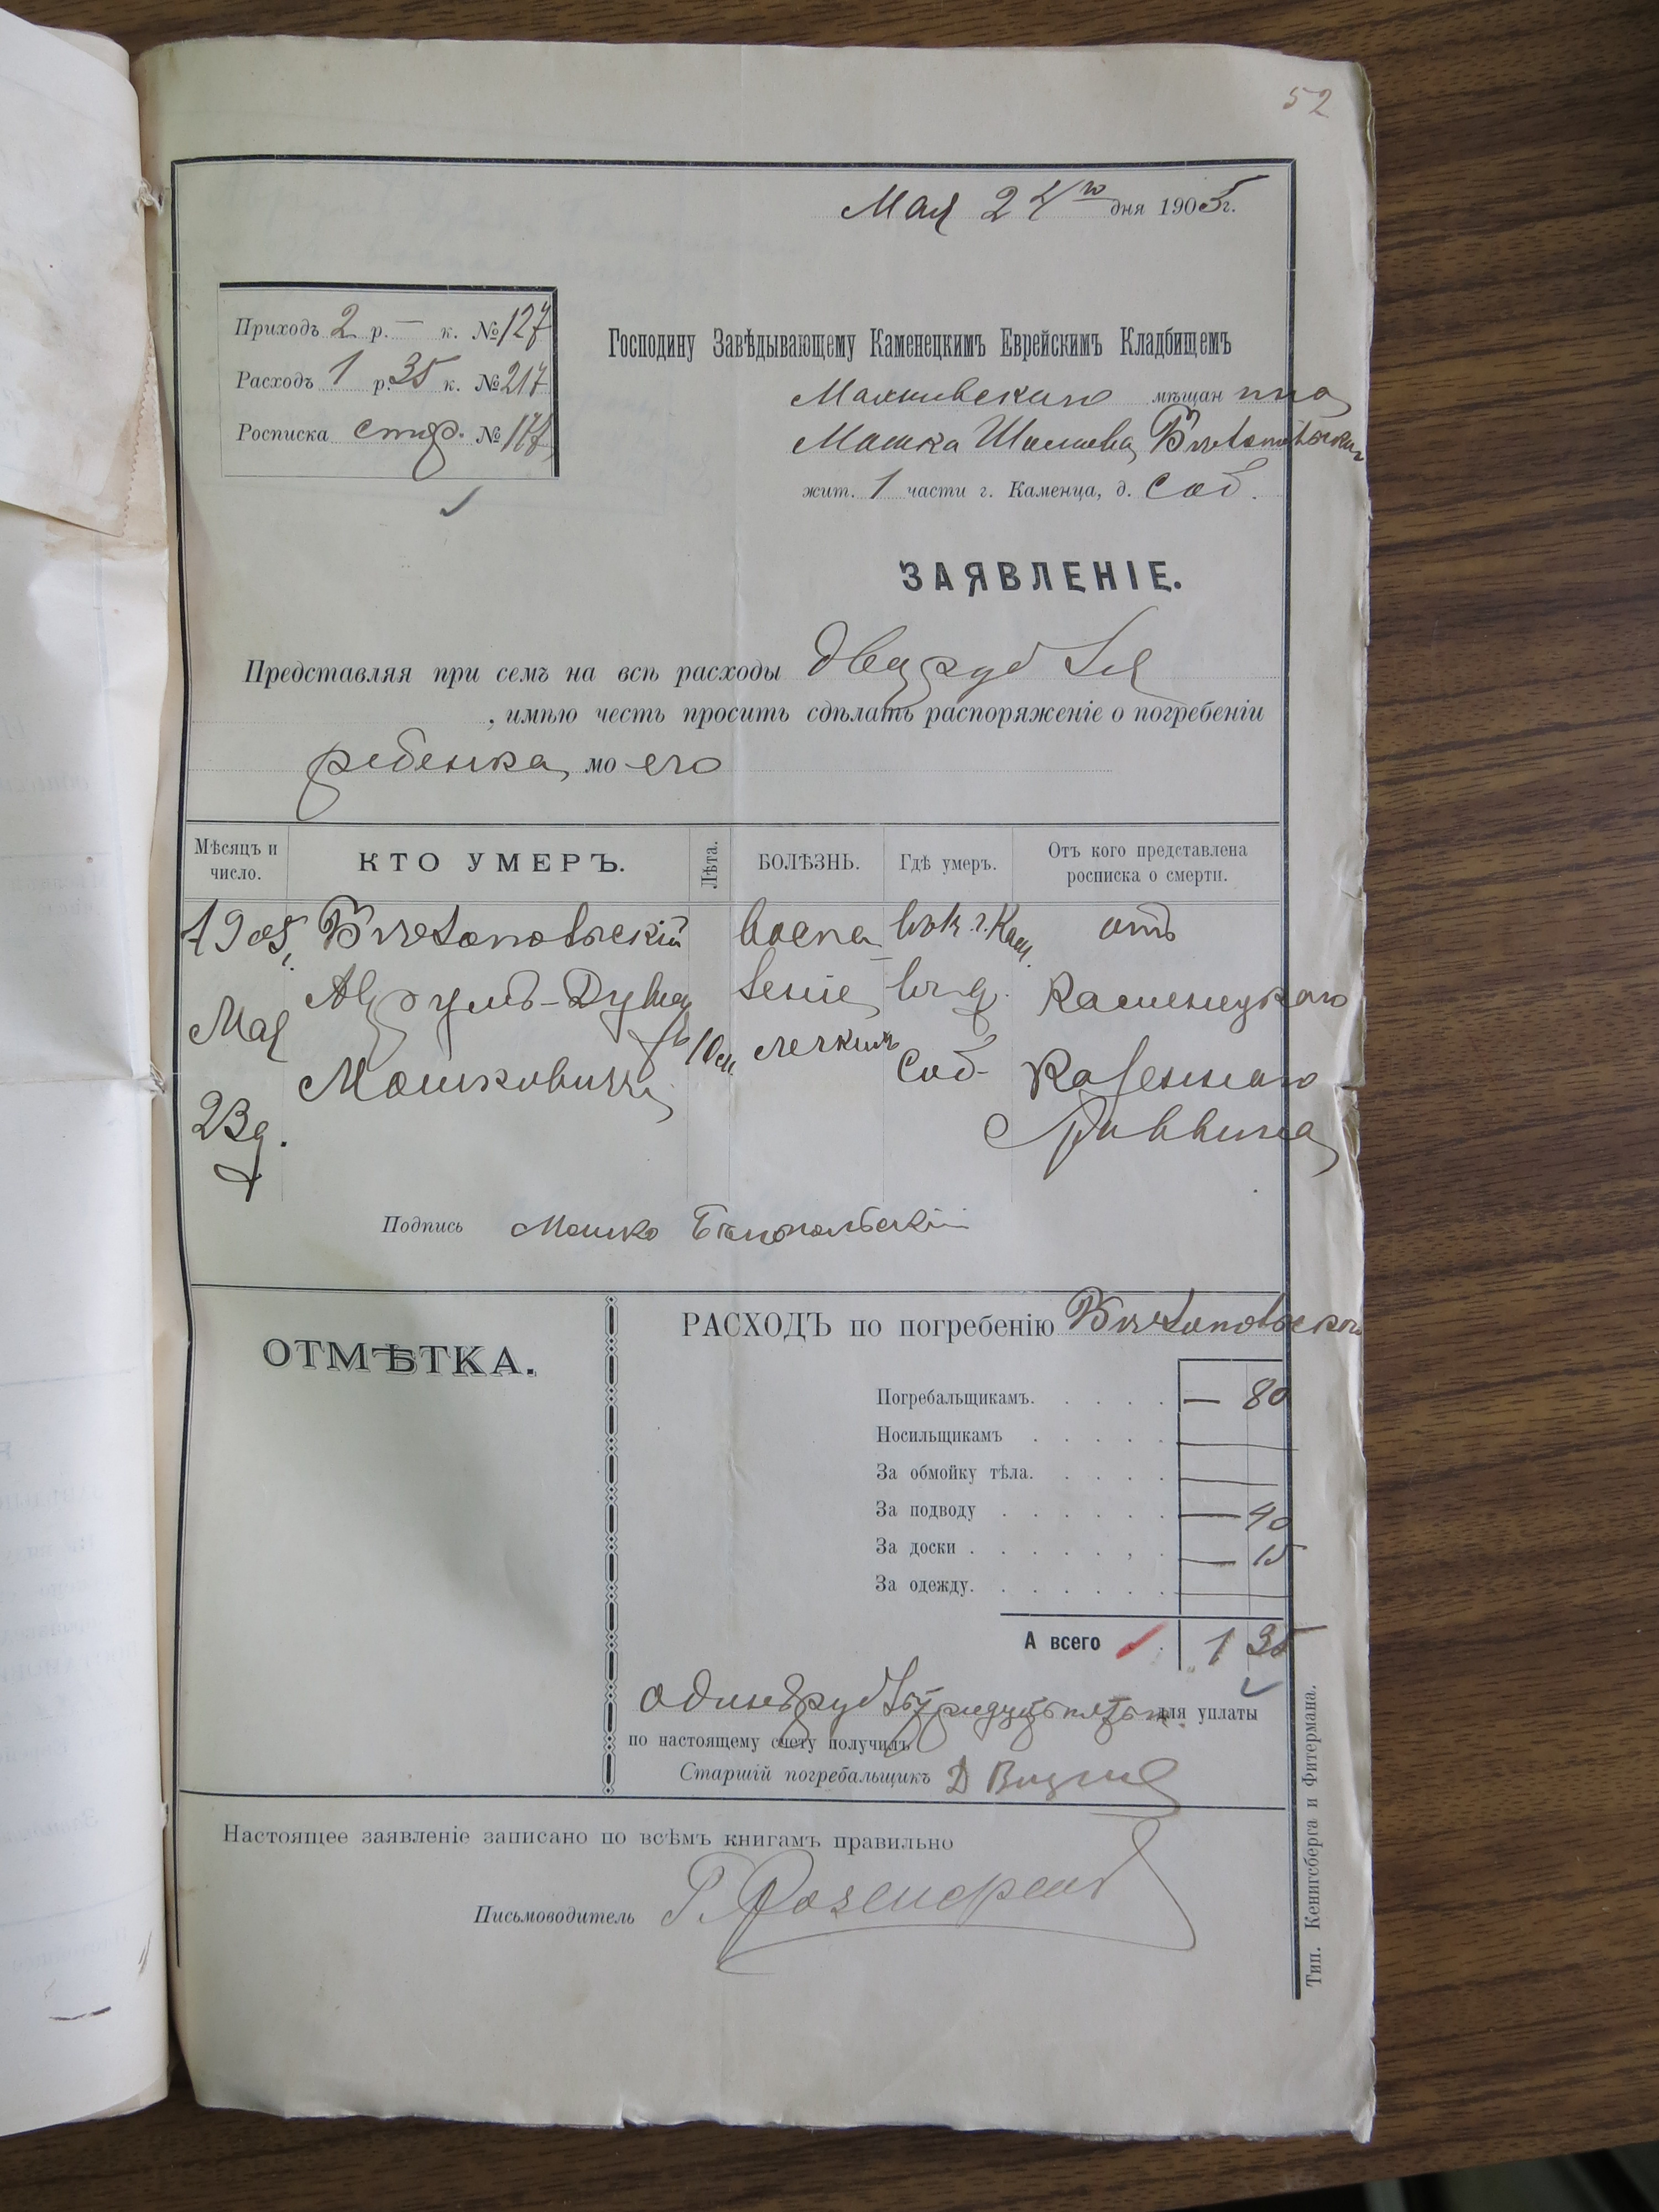 52
Мая 24го дня 1905г.
Приходъ 2 р. — к. № 127
Расходъ 1 р. 35 к. № 217
Росписка № 117
Господину Завѣдывающему Каменецкимъ Еврейскимъ Кладбищемъ
мѣщан ина
Мошка
жит. 1 части г. Каменца, д. Соб.
ЗАЯВЛЕНІЕ.
Представляя при семъ на всѣ расходы два рубля
, имѣю честь просить сдѣлать распоряженіе о погребеніи
ребенка мо его
Мѣсяцъ и число. КТО УМЕРЪ. Лѣта. БОЛѢЗНЬ. Гдѣ умеръ. Отъ кого представлена росписка о смерти.
1905 г. Бѣлопольскій воспа въ г. Кам. отъ
Мая леніе въ д. Каменецкаго
Мошковичъ 10 м. легкихъ Соб. Казеннаго
23 д. Раввина
Подпись Мошко Бѣлопольскій
ОТМѢТКА.
РАСХОДЪ по погребенію Бѣлопольскаго
Погребальщикамъ. — 80
Носильщикамъ —
За обмойку тѣла. —
За подводу — 40
За доски — 15
За одежду. —
А всего 1 35
одинъ рубль тридцать пять к. для уплаты
по настоящему счету получилъ
Старшій погребальщикъ Д
Настоящее заявленіе записано по всѣмъ книгамъ правильно
Письмоводитель Г. Розенфельд
Тип. Кенигсберга и Фитермана.